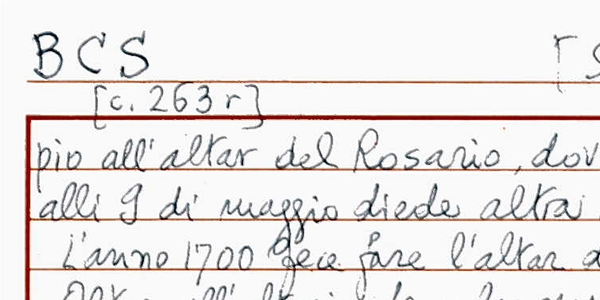 BCS [S
[c. 263 r]
pio all'altar del Rosario, dov
alli 9 di maggio diede altra
L'anno 1700 fece fare l'altar d